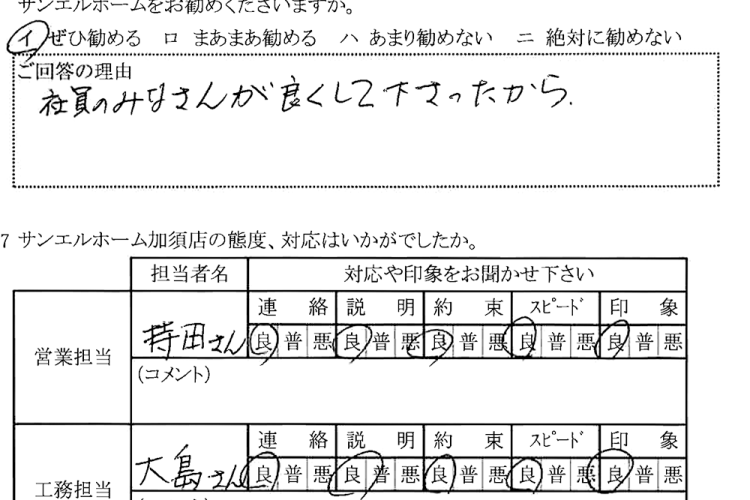 サンエルホームをお勧めくださいますか。
イ ぜひ勧める ロ まあまあ勧める ハ あまり勧めない ニ 絶対に勧めない
ご回答の理由
社員のみなさんが良くして下さったから.
7 サンエルホーム加須店の態度、対応はいかがでしたか。
担当者名 対応や印象をお聞かせ下さい
営業担当 持田さん 連絡 説明 約束 スピード 印象
良 普 悪 良 普 悪 良 普 悪 良 普 悪 良 普 悪
(コメント)
工務担当 大島さん 連絡 説明 約束 スピード 印象
良 普 悪 良 普 悪 良 普 悪 良 普 悪 良 普 悪